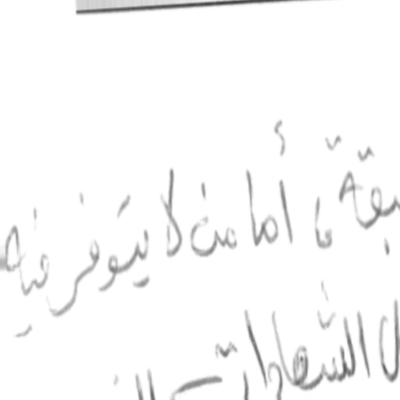 بقة، أما من لا يتوفر فيه
ل الشهادات